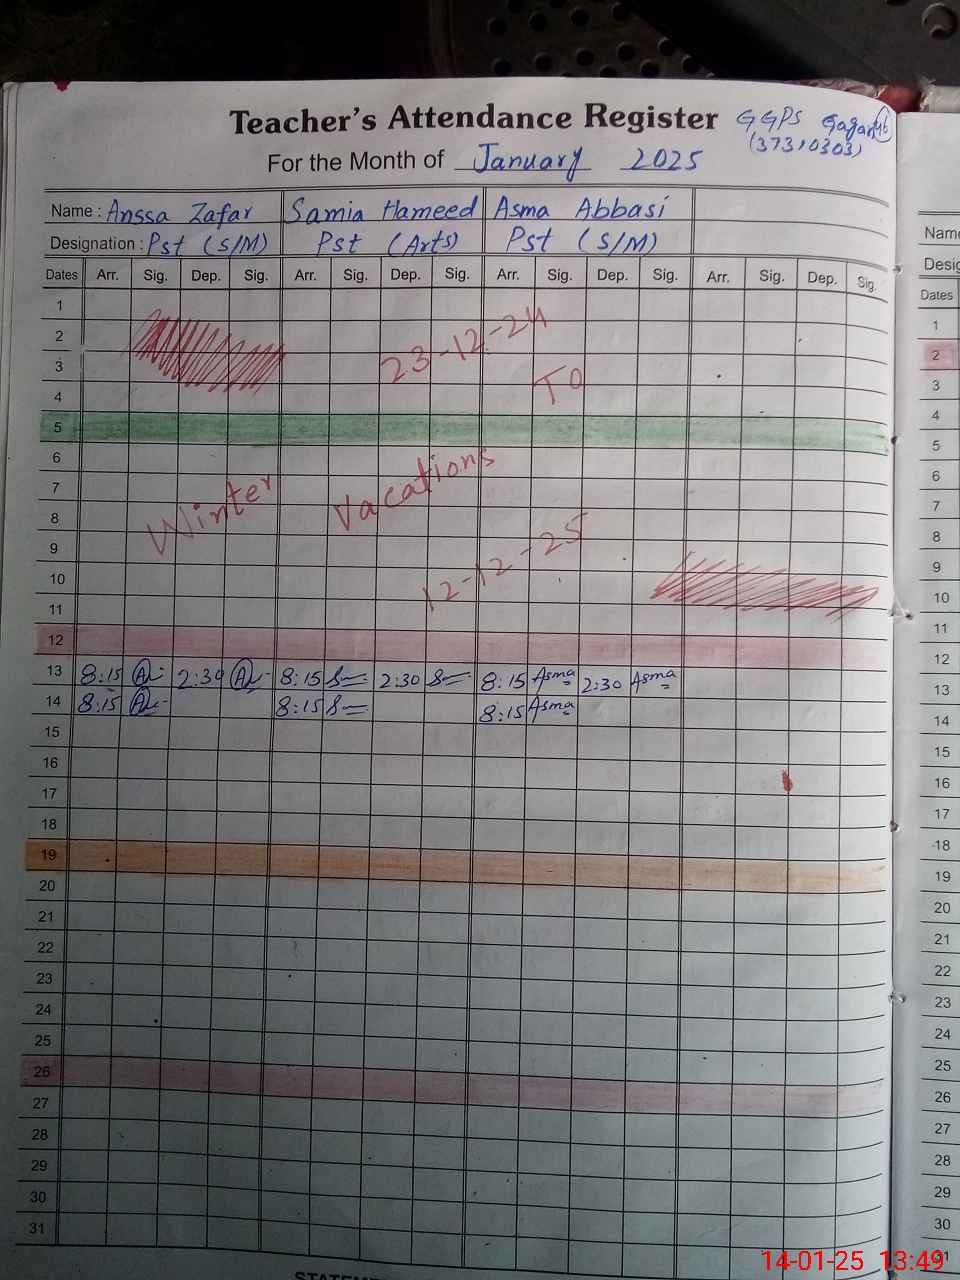 Teacher's Attendance Register GGPS
For the Month of January 2025 (37310303)
Name : Anssa Zafar Samia Hameed Asma Abbasi
Designation : Pst (S/M) Pst (Arts) Pst (S/M)
Dates Arr. Sig. Dep. Sig. Arr. Sig. Dep. Sig. Arr. Sig. Dep. Sig. Arr. Sig. Dep. Sig.
1
2 23-12-24
3
4 To
5
6
7 Winter Vacations
8
9
10 12-12-25
11
12
13 8:15 2:30 8:15 2:30 8:15 Asma 2:30 Asma
14 8:15 8:15 8:15 Asma
15
16
17
18
19
20
21
22
23
24
25
26
27
28
29
30
31
Name
Desig
Dates
1
2
3
4
5
6
7
8
9
10
11
12
13
14
15
16
17
18
19
20
21
22
23
24
25
26
27
28
29
30
14-01-25 13:49